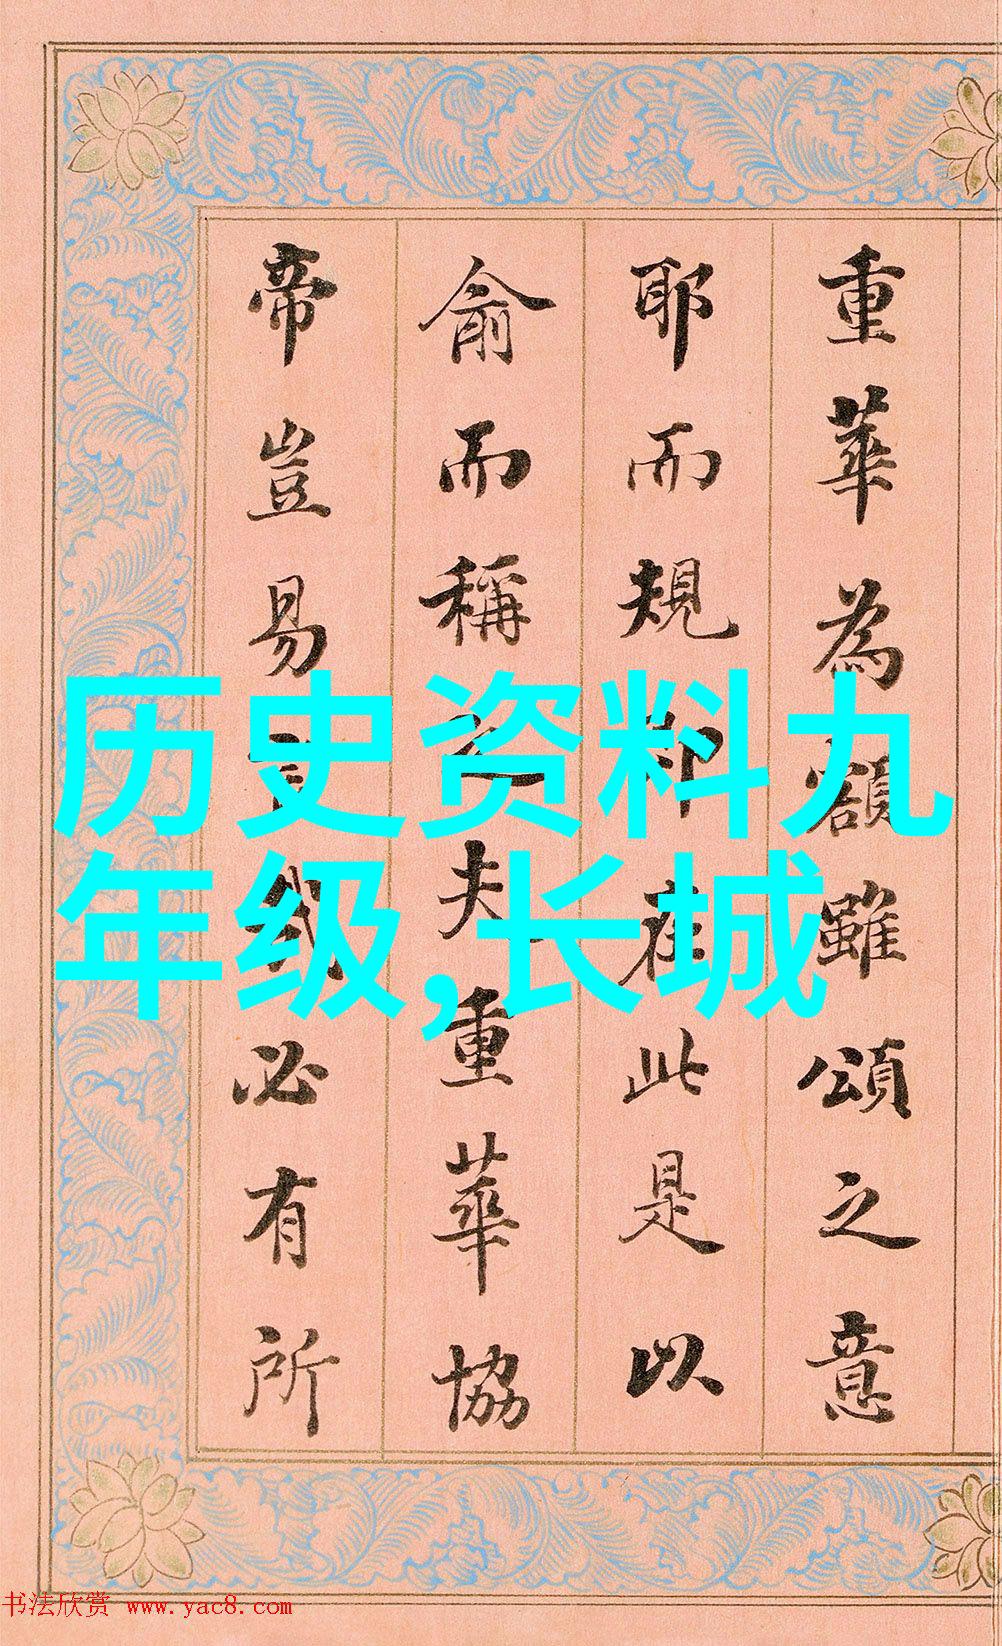 重華為額雖頌之意
耶而規即在此是以
俞而稱之夫重華協
帝豈易哉必有所
历史资料九
年级,长城
书法欣赏 www.yac8.com